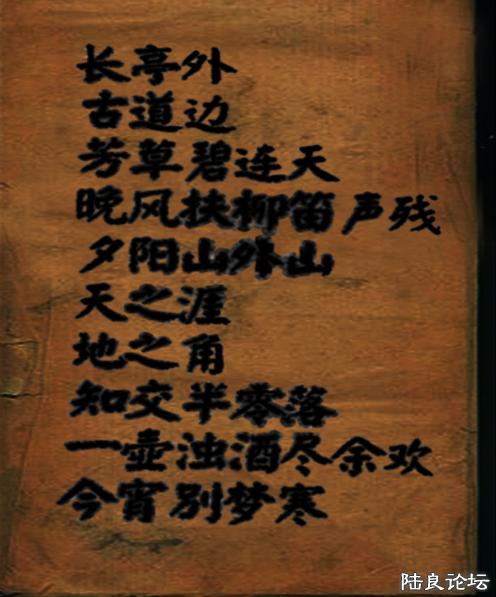 长亭外
古道边
芳草碧连天
晚风扶柳笛声残
夕阳山外山
天之涯
地之角
知交半零落
一壶浊酒尽余欢
今宵别梦寒
陆良论坛